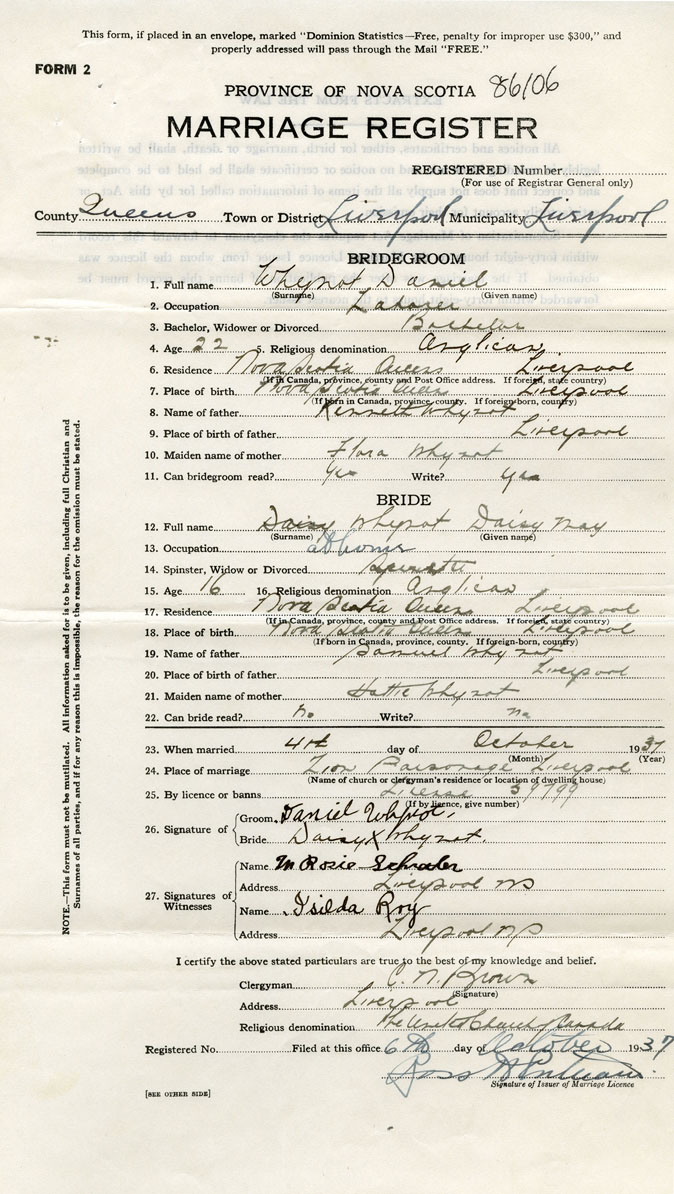 This form, if placed in an envelope, marked "Dominion Statistics—Free, penalty for improper use $300," and
properly addressed will pass through the Mail "FREE."
FORM 2
PROVINCE OF NOVA SCOTIA 86/06
MARRIAGE REGISTER
REGISTERED Number
(For use of Registrar General only)
County Queens Town or District Liverpool Municipality Liverpool
BRIDEGROOM
1. Full name Whynot Daniel
(Surname) (Given name)
2. Occupation Laborer
3. Bachelor, Widower or Divorced Bachelor
4. Age 22 5. Religious denomination Anglican
6. Residence Nova Scotia Queens Liverpool
(If in Canada, province, county and Post Office address. If foreign, state country)
7. Place of birth Nova Scotia Queens Liverpool
(If born in Canada, province, county. If foreign-born, country)
8. Name of father Kenneth Whynot
9. Place of birth of father Liverpool
10. Maiden name of mother Flora Whynot
11. Can bridegroom read? Yes Write? Yes
BRIDE
12. Full name Daisy Whynot Daisy May
(Surname) (Given name)
13. Occupation at home
14. Spinster, Widow or Divorced Spinster
15. Age 16 16. Religious denomination Anglican
17. Residence Nova Scotia Queens Liverpool
(If in Canada, province, county and Post Office address. If foreign, state country)
18. Place of birth Nova Scotia Queens Liverpool
(If born in Canada, province, county. If foreign-born, country)
19. Name of father Samuel Whynot
20. Place of birth of father Liverpool
21. Maiden name of mother Hattie Whynot
22. Can bride read? No Write? No
23. When married 4th day of October 1937
(Month) (Year)
24. Place of marriage Zion Parsonage Liverpool
(Name of church or clergyman's residence or location of dwelling house)
25. By licence or banns License 39799
(If by licence, give number)
26. Signature of Groom Daniel Whynot
Bride Daisy X Whynot.
27. Signatures of Witnesses Name M Rosie Schrader
Address Liverpool NS
Name Isilda Roy
Address Liverpool NS
I certify the above stated particulars are true to the best of my knowledge and belief.
Clergyman C. N. Brown
(Signature)
Address Liverpool
Religious denomination The United Church Canada
Registered No. Filed at this office 6th day of October 1937
Signature of Issuer of Marriage Licence
[SEE OTHER SIDE]
NOTE.—This form must not be mutilated. All information asked for is to be given, including full Christian and
Surnames of all parties, and if for any reason this is impossible, the reason for the omission must be stated.